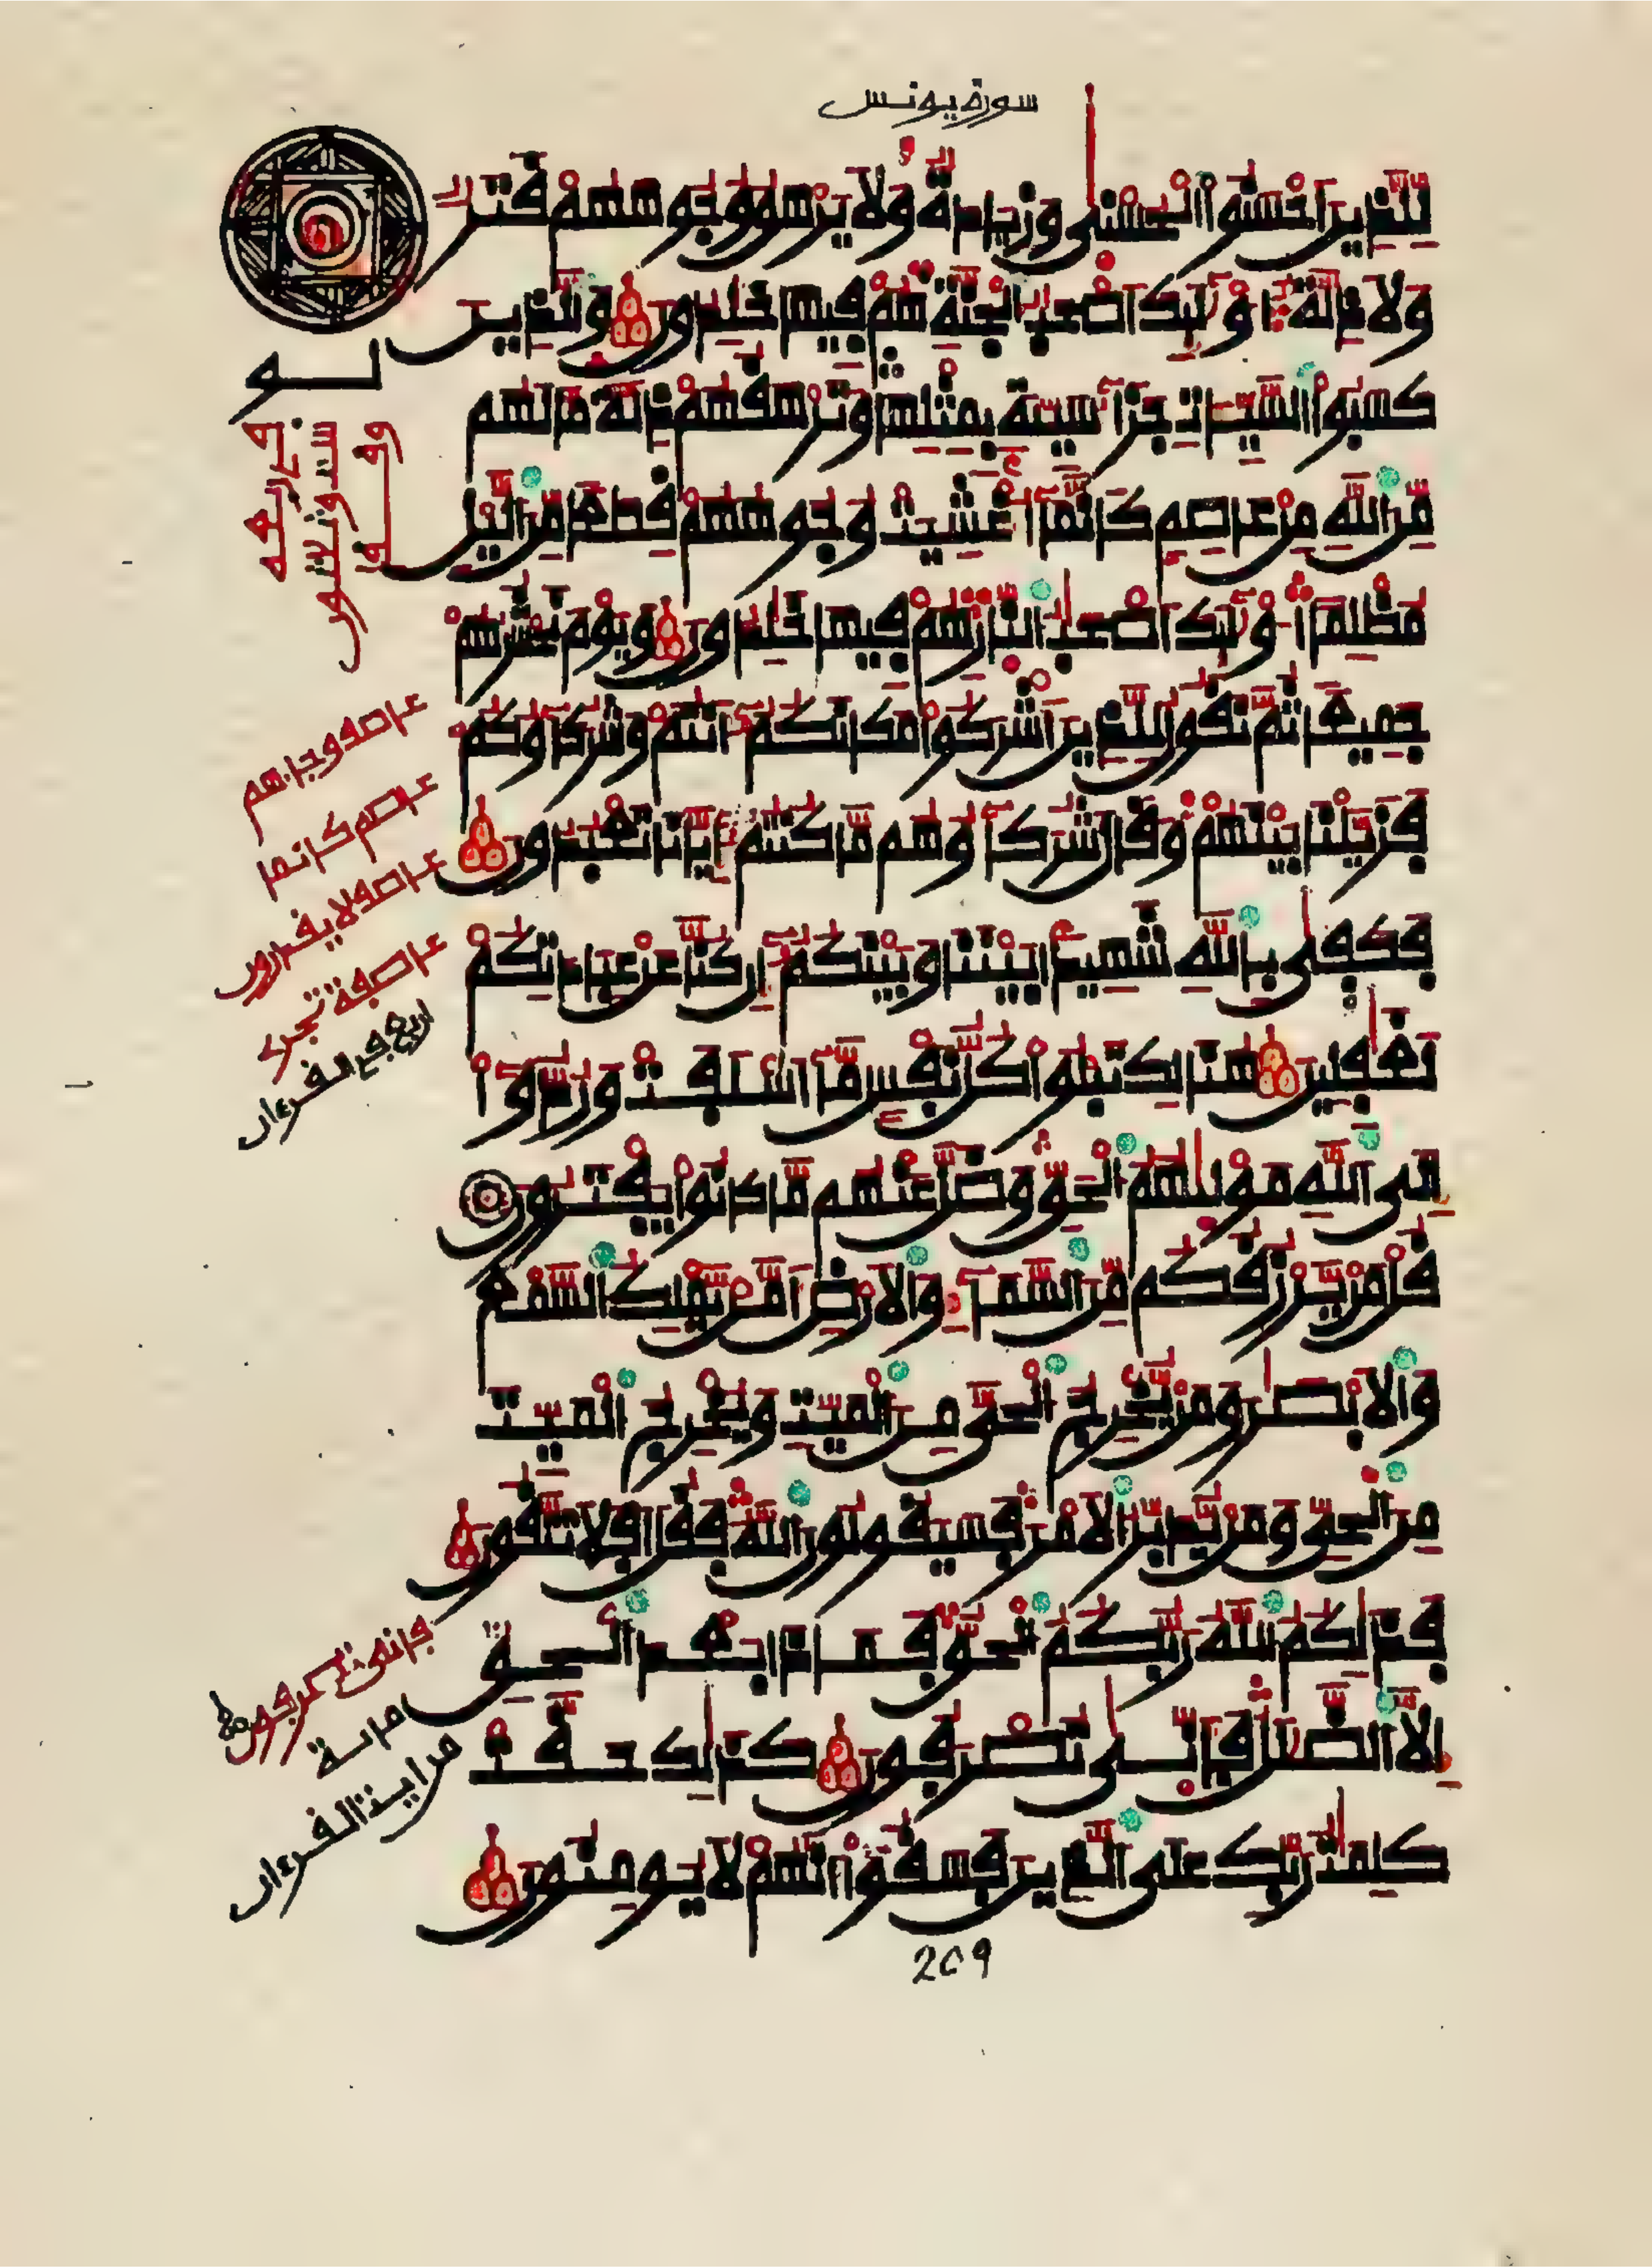 سورة يونس
لِلذِينَ أَحْسَنُوا الْحُسْنَى وَزِيَادَةٌ وَلَا يَرْهَقُ وُجُوهَهُمْ قَتَرٌ
وَلَا ذِلَّةٌ اُوْلَئِكَ أَصْحَبُ الْجَنَّةِ هُمْ فِيهَا خَلِدُونَ وَالذِينَ
كَسَبُوا السَّيِّئَاتِ جَزَاءُ سَيِّئَةٍ بِمِثْلِهَا وَتَرْهَقُهُمْ ذِلَّةٌ مَّا لَهُم
مِّنَ اللَّهِ مِنْ عَاصِمٍ كَأَنَّمَا أُغْشِيَتْ وُجُوهُهُمْ قِطَعًا مِّنَ اليْلِ
مُظْلِمًا اُوْلَئِكَ أَصْحَبُ النَّارِ هُمْ فِيهَا خَلِدُونَ وَيَوْمَ نَحْشُرُهُمْ
جَمِيعًا ثُمَّ نَقُولُ لِلذِينَ أَشْرَكُوا مَكَانَكُمْ أَنتُمْ وَشُرَكَاؤُكُمْ
فَزَيَّلْنَا بَيْنَهُمْ وَقَالَ شُرَكَاؤُهُم مَّا كُنتُمْ إِيَّانَا تَعْبُدُونَ
فَكَفَى بِاللَّهِ شَهِيدًا بَيْنَنَا وَبَيْنَكُمْ إِن كُنَّا عَنْ عِبَادَتِكُمْ
لَغَفِلِينَ هُنَالِكَ تَبْلُوا كُلُّ نَفْسٍ مَّا أَسْلَفَتْ وَرُدُّوا
إِلَى اللَّهِ مَوْلَيهُمُ الْحَقِّ وَضَلَّ عَنْهُم مَّا كَانُوا يَفْتَرُونَ
قُلْ مَنْ يَرْزُقُكُم مِّنَ السَّمَاءِ وَالْأَرْضِ أَمَّنْ يَمْلِكُ السَّمْعَ
وَالْأَبْصَرَ وَمَنْ يُخْرِجُ الْحَيَّ مِنَ الْمَيِّتِ وَيُخْرِجُ الْمَيِّتَ
مِنَ الْحَيِّ وَمَنْ يُدَبِّرُ الْأَمْرَ فَسَيَقُولُونَ اللَّهُ فَقُلْ أَفَلَا تَتَّقُونَ
فَذَلِكُمُ اللَّهُ رَبُّكُمُ الْحَقُّ فَمَاذَا بَعْدَ الْحَقِّ
إِلَّا الضَّلَلُ فَأَنَّى تُصْرَفُونَ كَذَلِكَ حَقَّتْ
كَلِمَتُ رَبِّكَ عَلَى الذِينَ فَسَقُوا أَنَّهُمْ لَا يُومِنُونَ
عاصم كانما
ربع القرءان
209